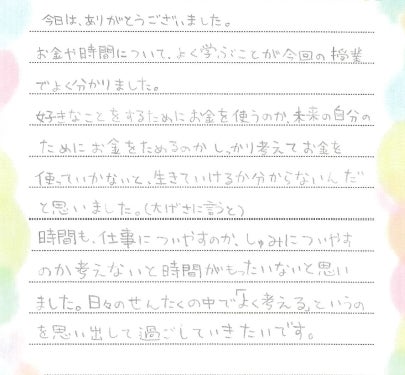 今日は、ありがとうございました。
お金や時間について、よく学ぶことが今回の授業
でよく分かりました。
好きなことをするためにお金を使うのか、未来の自分の
ためにお金をためるのかしっかり考えてお金を
使っていかないと、生きていけるか分からないんだ
と思いました。(大げさに言うと)
時間も、仕事についやすのか、しゅみについやす
のか考えないと時間がもったいないと思い
ました。日々のせんたくの中で「よく考える」というの
を思い出して過ごしていきたいです。